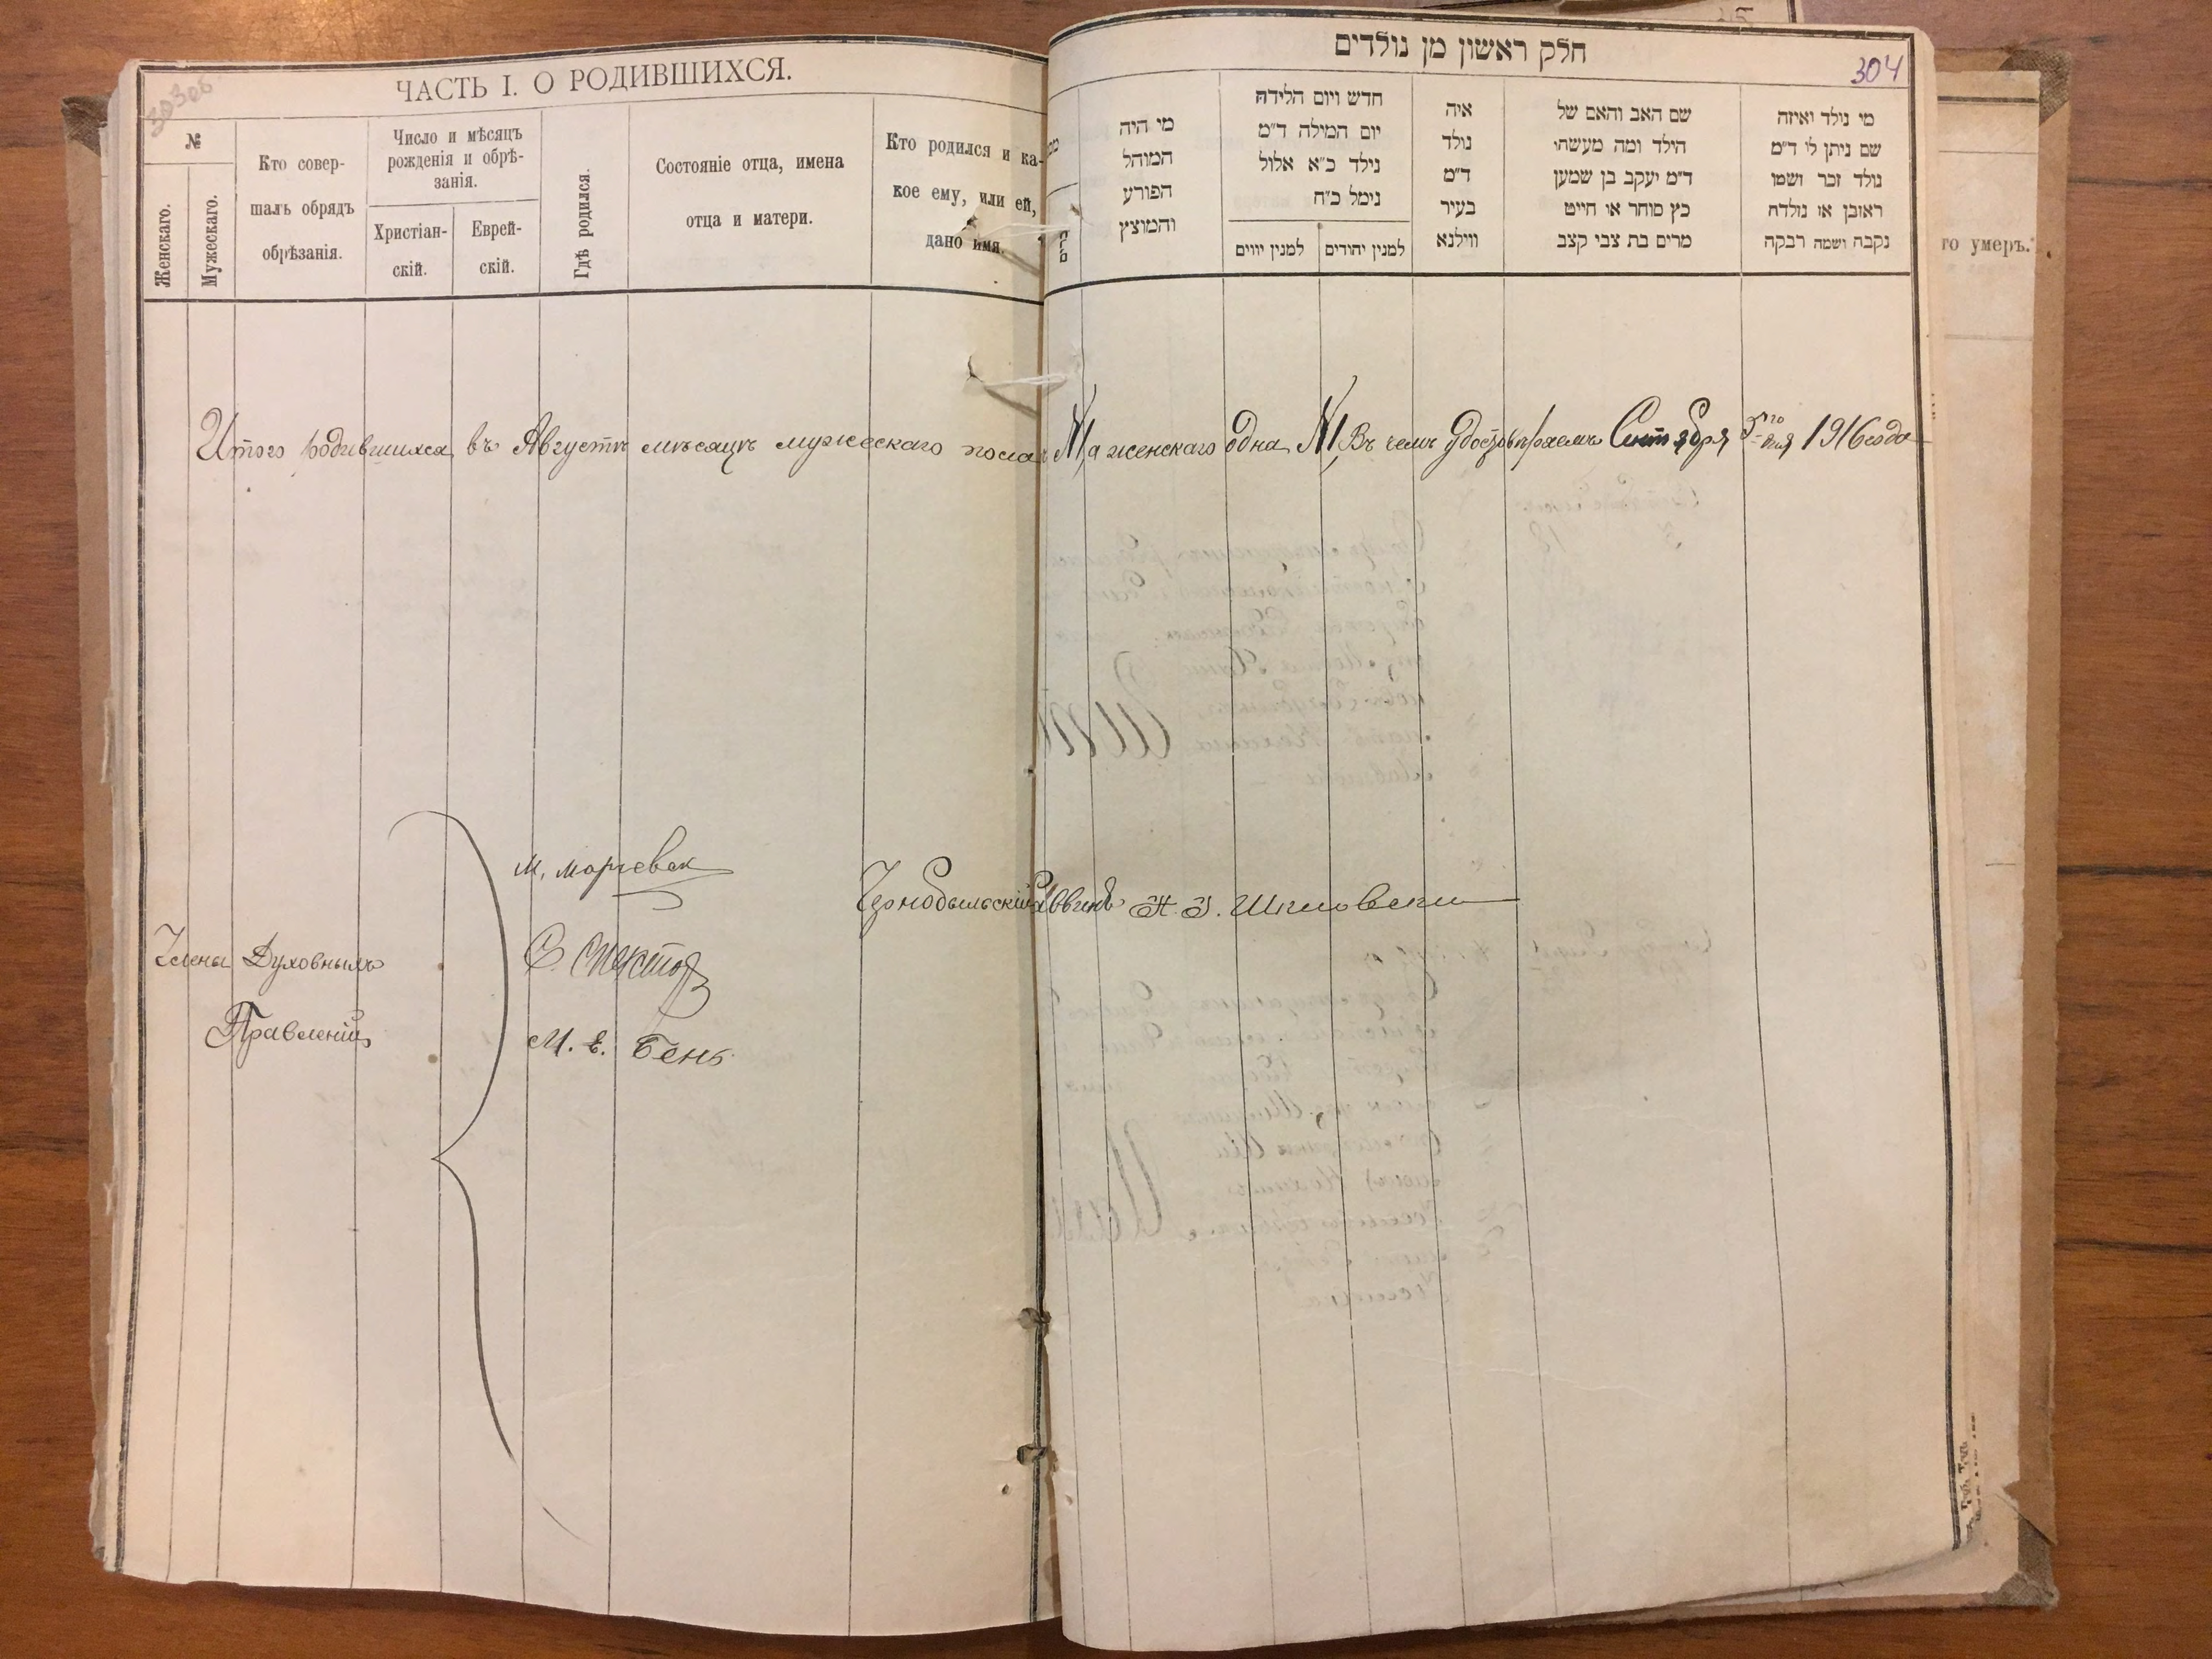 ЧАСТЬ I. О РОДИВШИХСЯ.
№
Женскаго.
Мужескаго.
Кто совер-
шалъ обрядъ
обрѣзанія.
Число и мѣсяцъ
рожденія и обрѣ-
занія.
Христіан-
скій.
Еврей-
скій.
Гдѣ родился.
Состояніе отца, имена
отца и матери.
Кто родился и ка-
кое ему, или ей,
дано имя.
חלק ראשון מן נולדים
304
מי היה
המוהל
הפורע
והמוצץ
חדש ויום הלידה
יום המילה ד״מ
נילד כ״א אלול
נימל כ״ח
למנין יווים
למנין יהודים
איה
נולד
ד״מ
בעיר
ווילנא
שם האב והאם של
הילד ומה מעשהו
ד״מ יעקב בן שמען
כץ סוחר או חייט
מרים בת צבי קצב
מי נולד ואיזה
שם ניתן לו ד״מ
נולד זכר ושמו
ראובן או נולדה
נקבה ושמה רבקה
го умеръ.
Итого родившихся въ Августѣ мѣсяцѣ мужескаго пола №1, а женскаго одна №1, Въ чемъ удостовѣряемъ Сентября 5го дня 1916 года
Члены Духовныхъ
Правленій
С. Спектор
М. Е. Бенъ
Чернобыльскій Раввинъ Шкловскій